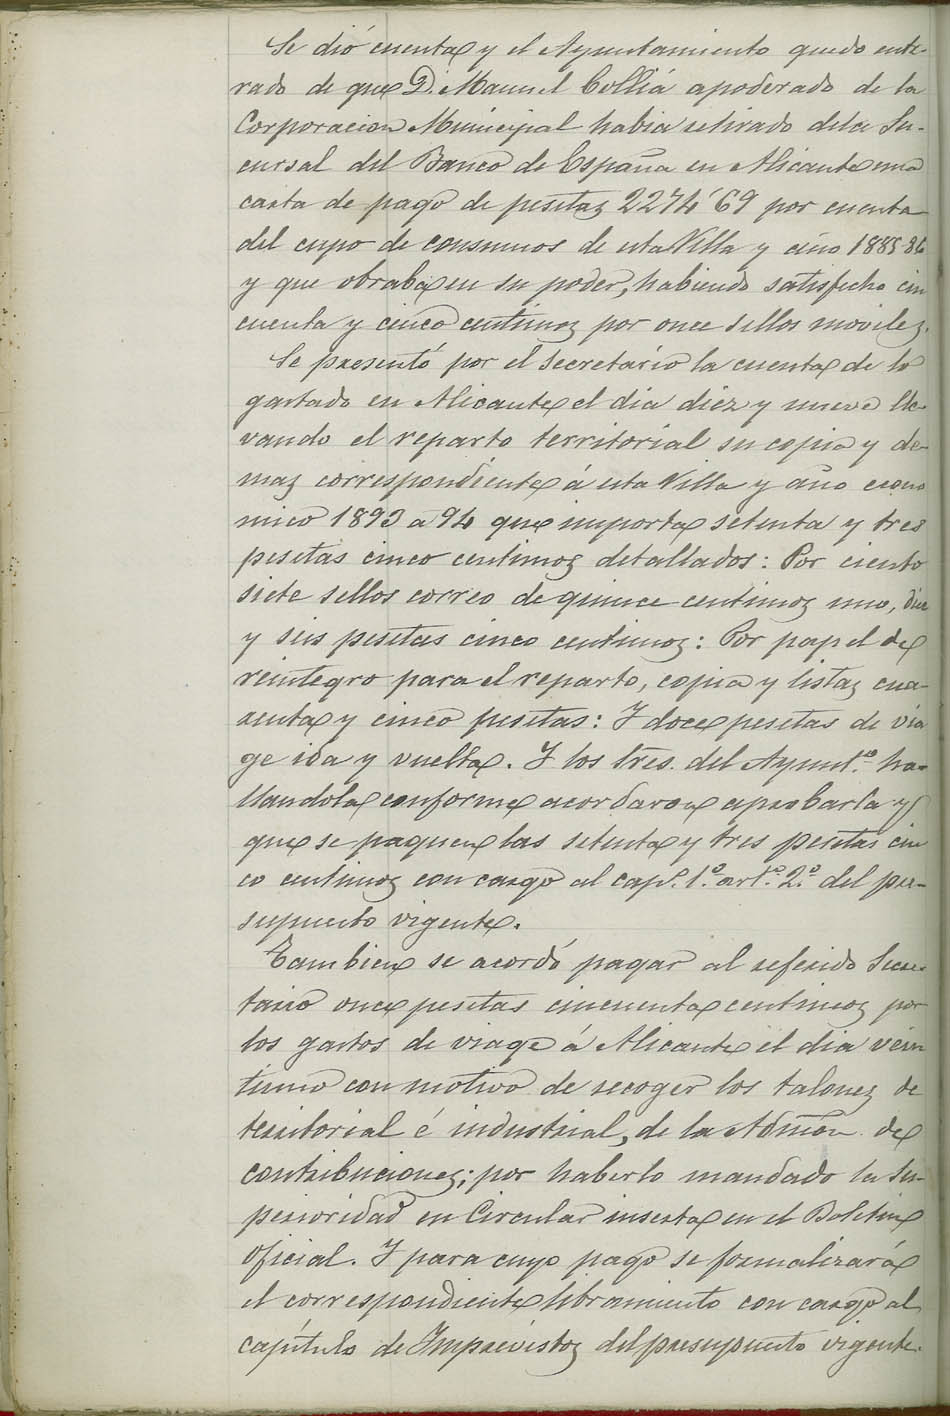 Se dió cuenta y el Ayuntamiento quedo ente-
rado de que D. Manuel Colliá apoderado de la
Corporacion Municipal habia retirado dela Su-
cursal del Banco de España en Alicante una
carta de pago de pesetas 2274'69 por cuenta
del cupo de consumos de esta Villa y año 1885-86
y que obraba en su poder, habiendo satisfecho cin
cuenta y cinco centimos por once sellos moviles.
Se presentó por el Secretário la cuenta de lo
gastado en Alicante el dia diez y nueve lle-
vando el reparto territorial su copia y de-
mas correspondiente á esta Villa y año econo
mico 1893 a 94 que importa setenta y tres
pesetas cinco centimos detallados: Por ciento
siete sellos correo de quince centimos uno, diez
y seis pesetas cinco centimos: Por papel de
reintegro para el reparto, copia y listas cua-
renta y cinco pesetas: Y doce pesetas de via
ge ida y vuelta. Y los Sres. del Ayunt.º ha-
llandola conforme acordaron aprobarla y
que se paguen las setenta y tres pesetas cin
co centimos con cargo al cap.º 1.º art.º 2.º del pre-
supuesto vigente.
Tambien se acordó pagar al referido Secre-
tario once pesetas cincuenta centimos por
los gastos de viage á Alicante el dia vein
tiuno con motivo de recoger los talones de
territorial é industrial, de la Admon. de
contribuciones; por haberlo mandado la Su-
perioridad en Circular inserta en el Boletin
Oficial. Y para cuyo pago se formalizará
el correspondiente libramiento con cargo al
capítulo de Imprevistos del presupuesto vigente.